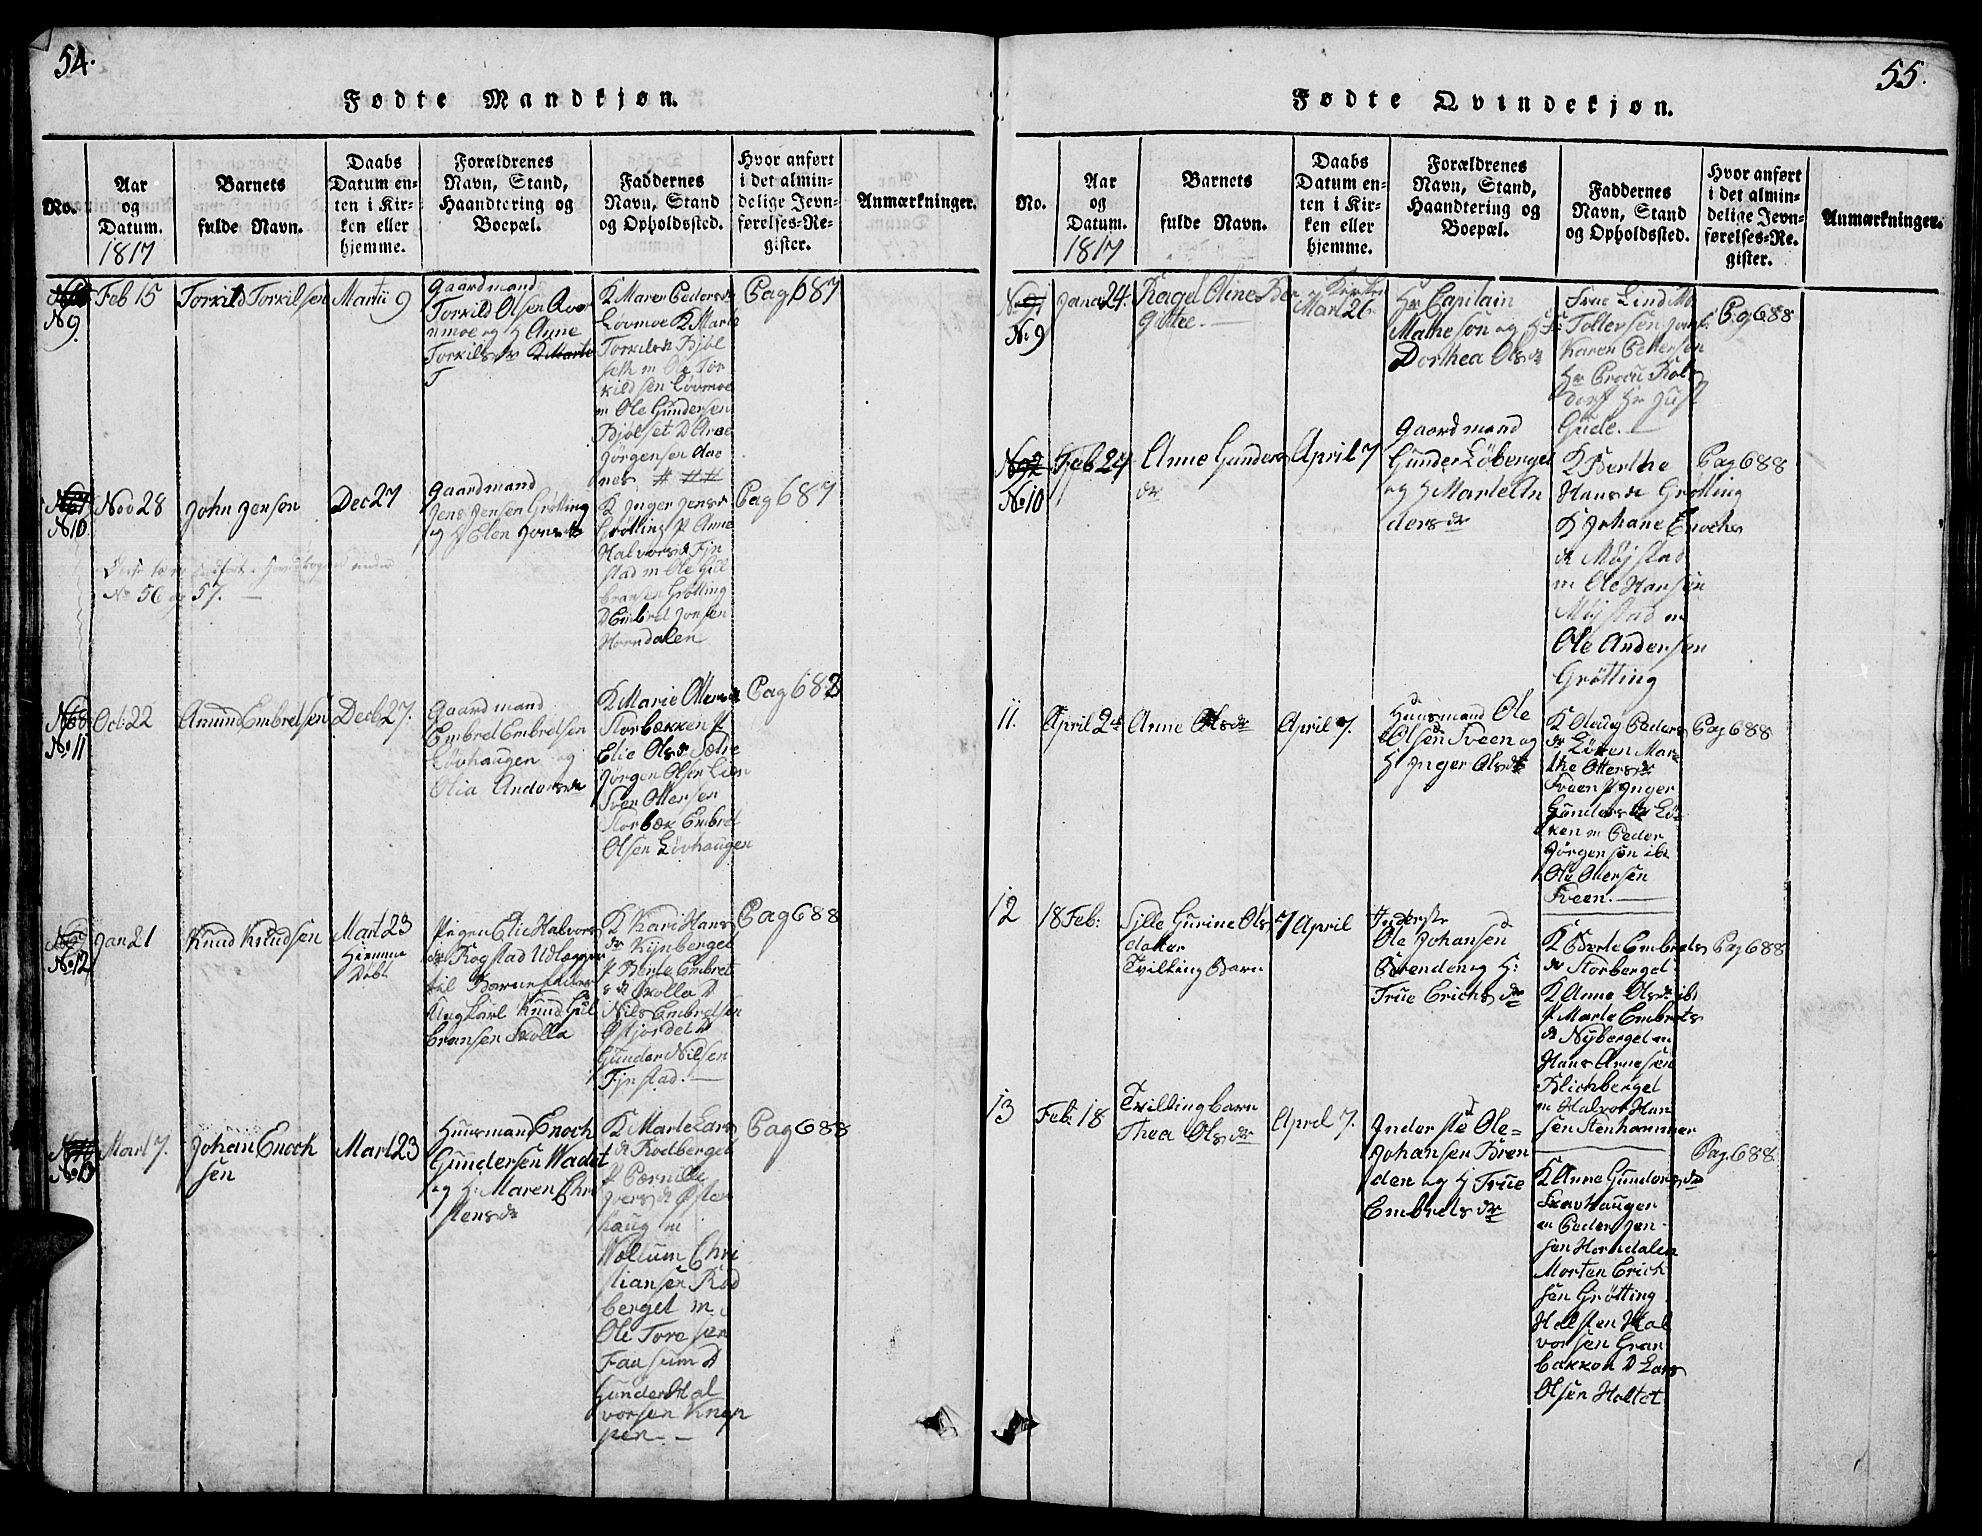 54.
Fødte Mandkjøn.
No.
Aar
og
Datum.
1817
Barnets
fulde Navn.
Daabs
Datum en-
ten i Kir-
ken eller
hjemme.
Forældrenes
Navn, Stand,
Haandtering og
Boepæl.
Faddernes
Navn, Stand
og Opholdssted.
Hvor anført
i det almin-
delige Jevn-
førelses-Re-
gister.
Anmærkninger.
N 9.
Feb 15
Torkild Torkilsen
Martii 9
Gaardmand
Torkild Olsen
moe og H Anne
Torkilsdr
K Maren Pedersdr
Løvmoe K Marte
Torkilsdr Bjøl
seth m Ole Tor
kildsen Løvmoe
m Ole Gundersen
Bjølset D Arne
Jørgensen Aae
nes
Pag 687
No 10
Nov 28
John Jensen
Dec 27
Gaardmand
Jens Jensen Grøtting
og H Elen Jonsdr
K Inger Jensdr
Grøtting P Anne
Halvorsdr Fjn
stad m Ole Gill
bransen Grøtting
D Embret Jonsen
Horndalen
Pag 687
No 56 og 57.
No 11
Oct: 22
Amund Embretsen
Decb 27.
Gaardmand
Embret Embretsen
Løvhaugen og
Olia Andersdr
K Marie Ottersdr
Storbækken P
Elie Olsdr Sætre
Jørgen Olsen Lien
Sven Ottersen
Storbæk Embret
Olsen Løvhaugen
Pag 688
No 12
Jan 21
Knud Knudsen
Mart 23
Hjemme
Døbt
Pigen Elie Halvors
dr Rogstad Udlægger
til Barnefader
Ungkarl Knud Gul
bransen Skolla
K Kari Hans
dr Kynberget
P Berte Embret
sdr Skolla D
Nils Embretsen
Østjordet D
Gunder Nilsen
Fjnstad.
Pag 688
No 13
Mart 7.
Johan Enoch
sen
Mart 23
Huusmand Enoch
Gundersen Wadet
og H: Maren Chri
stensdr
K Marte Lars
dr Rodberget
P Pernille
Iversdr Øster
haug m
Wollum Chri
stiansen Rød
berget m
Ole Toresen
Faasum D
Gunder Hal
vorsen Knap
pen.
Pag 688
55.
Fødte Qvindekjøn.
No.
Aar
og
Datum.
1817
Barnets
fulde Navn.
Daabs
Datum en-
ten i Kir-
ken eller
hjemme.
Forældrenes
Navn, Stand,
Haandtering og
Boepæl.
Faddernes
Navn, Stand
og Opholdssted.
Hvor anført
i det almin-
delige Jevn-
førelses-Re-
gister.
Anmærkninger.
No 9
Janu 24.
Ragel Oline Ber
gitte.
Mart 26
Hr Capitain
Matheson og H: Fr:
Dorthea Olsdr
Frue Lind Mo
Tollersen
Karen Pettersen
Gude.
Pag 688
No 10
Feb 24
Anne Gunders
dr
April 7
Gaardmand
Gunder Løberget
og H Marte An
dersdr
K Berthe
Hansdr Grøtting
K Johane Enochs
dr Mojstad
m Ole Hansen
Mojstad m
Ole Andersen
Grøtting
Pag 688
11.
April 2
Anne Olsdr
April 7.
Huusmand Ole
Olsen Sveen og
H: Inger Olsdr
K Oleug Peders
dr Løken Mar
the Ottersdr
Sveen P Inger
Gundersdr Lø
ken m Peder
Jørgensen ibt
Ole Ottersen
Sveen.
Pag 688
12
18 Feb:
Sille Gurine Ols
datter
Tvilling Barn
7 April
Inderste
Ole Johansen
Brenden og H:
True Erichsdr
K Berte Embrets
dr Storberget
K Anne Olsdr ibt
P Marte Embrets
dr Nyberget m
Hans Arnesen
Blichberget
m Halvor Han
sen Stenhammer
Pag 688
13
Feb: 18
Tvillingbarn
Thea Olsdr
April 7.
Inderste Ole
Johansen Bren
den og H True
Embretsdr
K Anne Gundersdr
Skavhaugen
m Peder Jen
sen Horndalen
Morten Erich
sen Grøtting
Halsten Hal
vorsen Gran
bakken D Lars
Olsen Holtet
Pag. 688.